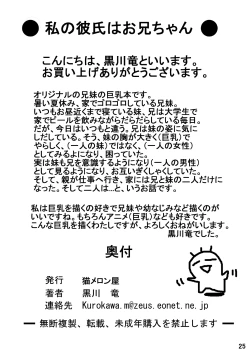 ● 私の彼氏はお兄ちゃん ●
こんにちは、黒川竜といいます。
お買い上げありがとうございます。
オリジナルの兄妹の巨乳本です。
暑い夏休み、家でゴロゴロしている兄妹。
いつもお昼近くまで寝ている妹、兄は大学生で
家でビールを飲みながらだらだらしている毎日。
だが、今日はいつもと違う。兄は妹の姿に気に
しだしている。そう、妹の胸が大きく(巨乳)で
やらしく、(一人の妹)ではなく、(一人の女性)
としてみるようになり、困っている。
実は妹も兄を意識するようになり(一人の男性)
として見るようになり、お互いぎくしゃくしている。
そして、親が仕事へ行き、家には兄と妹の二人だけに
なった。そして二人は…と、いうお話です。
私は巨乳を描くの好きで兄妹や幼なじみなど描くのが
いいですね。もちろんアニメ(巨乳)なども好きです。
こんな巨乳を描くわたしですが、よろしくおねがいします。
黒川竜でした。
奥付
発行 猫メロン屋
著者 黒川 竜
連絡先 Kurokawa.m@zeus.eonet.ne.jp
― 無断複製、転載、未成年購入を禁止します ―
25